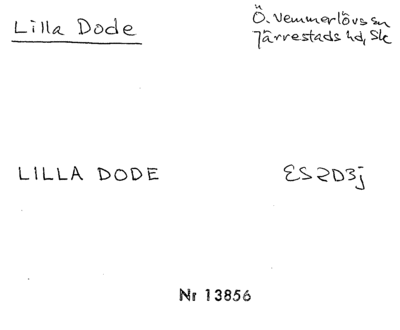 Lilla Dode
Ö. Vemmerlövs sn
Järrestads hd, Sk
LILLA DODE
ES2D3j
Nr 13856